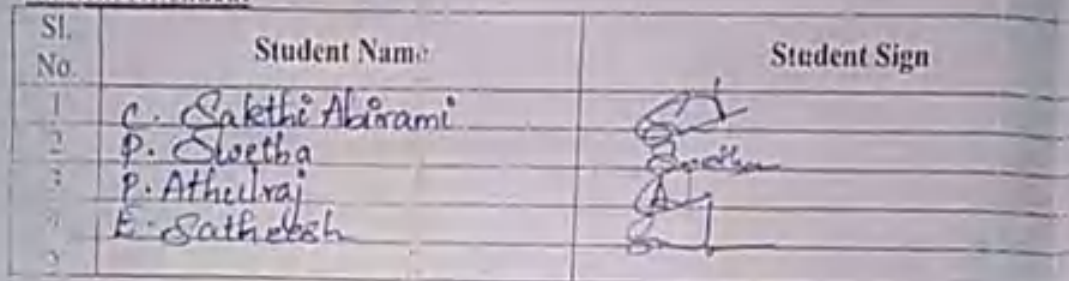 Sl. No. Student Name Student Sign
1 C. Sakthi Abirami
2 P. Swetha Swetha
3 P. Athulraj
4 E. Satheesh
5